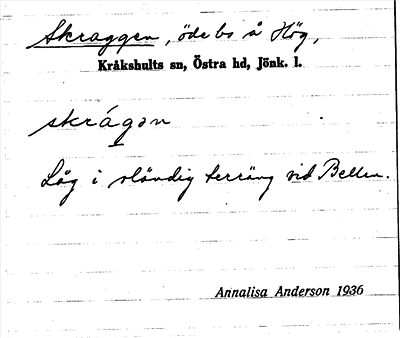 Skraggen, öde bs å Hög,
Kråkshults sn, Östra hd, Jönk. l.
skrágən
Låg i släudig terräng vid Bellen.
Annalisa Anderson 1936